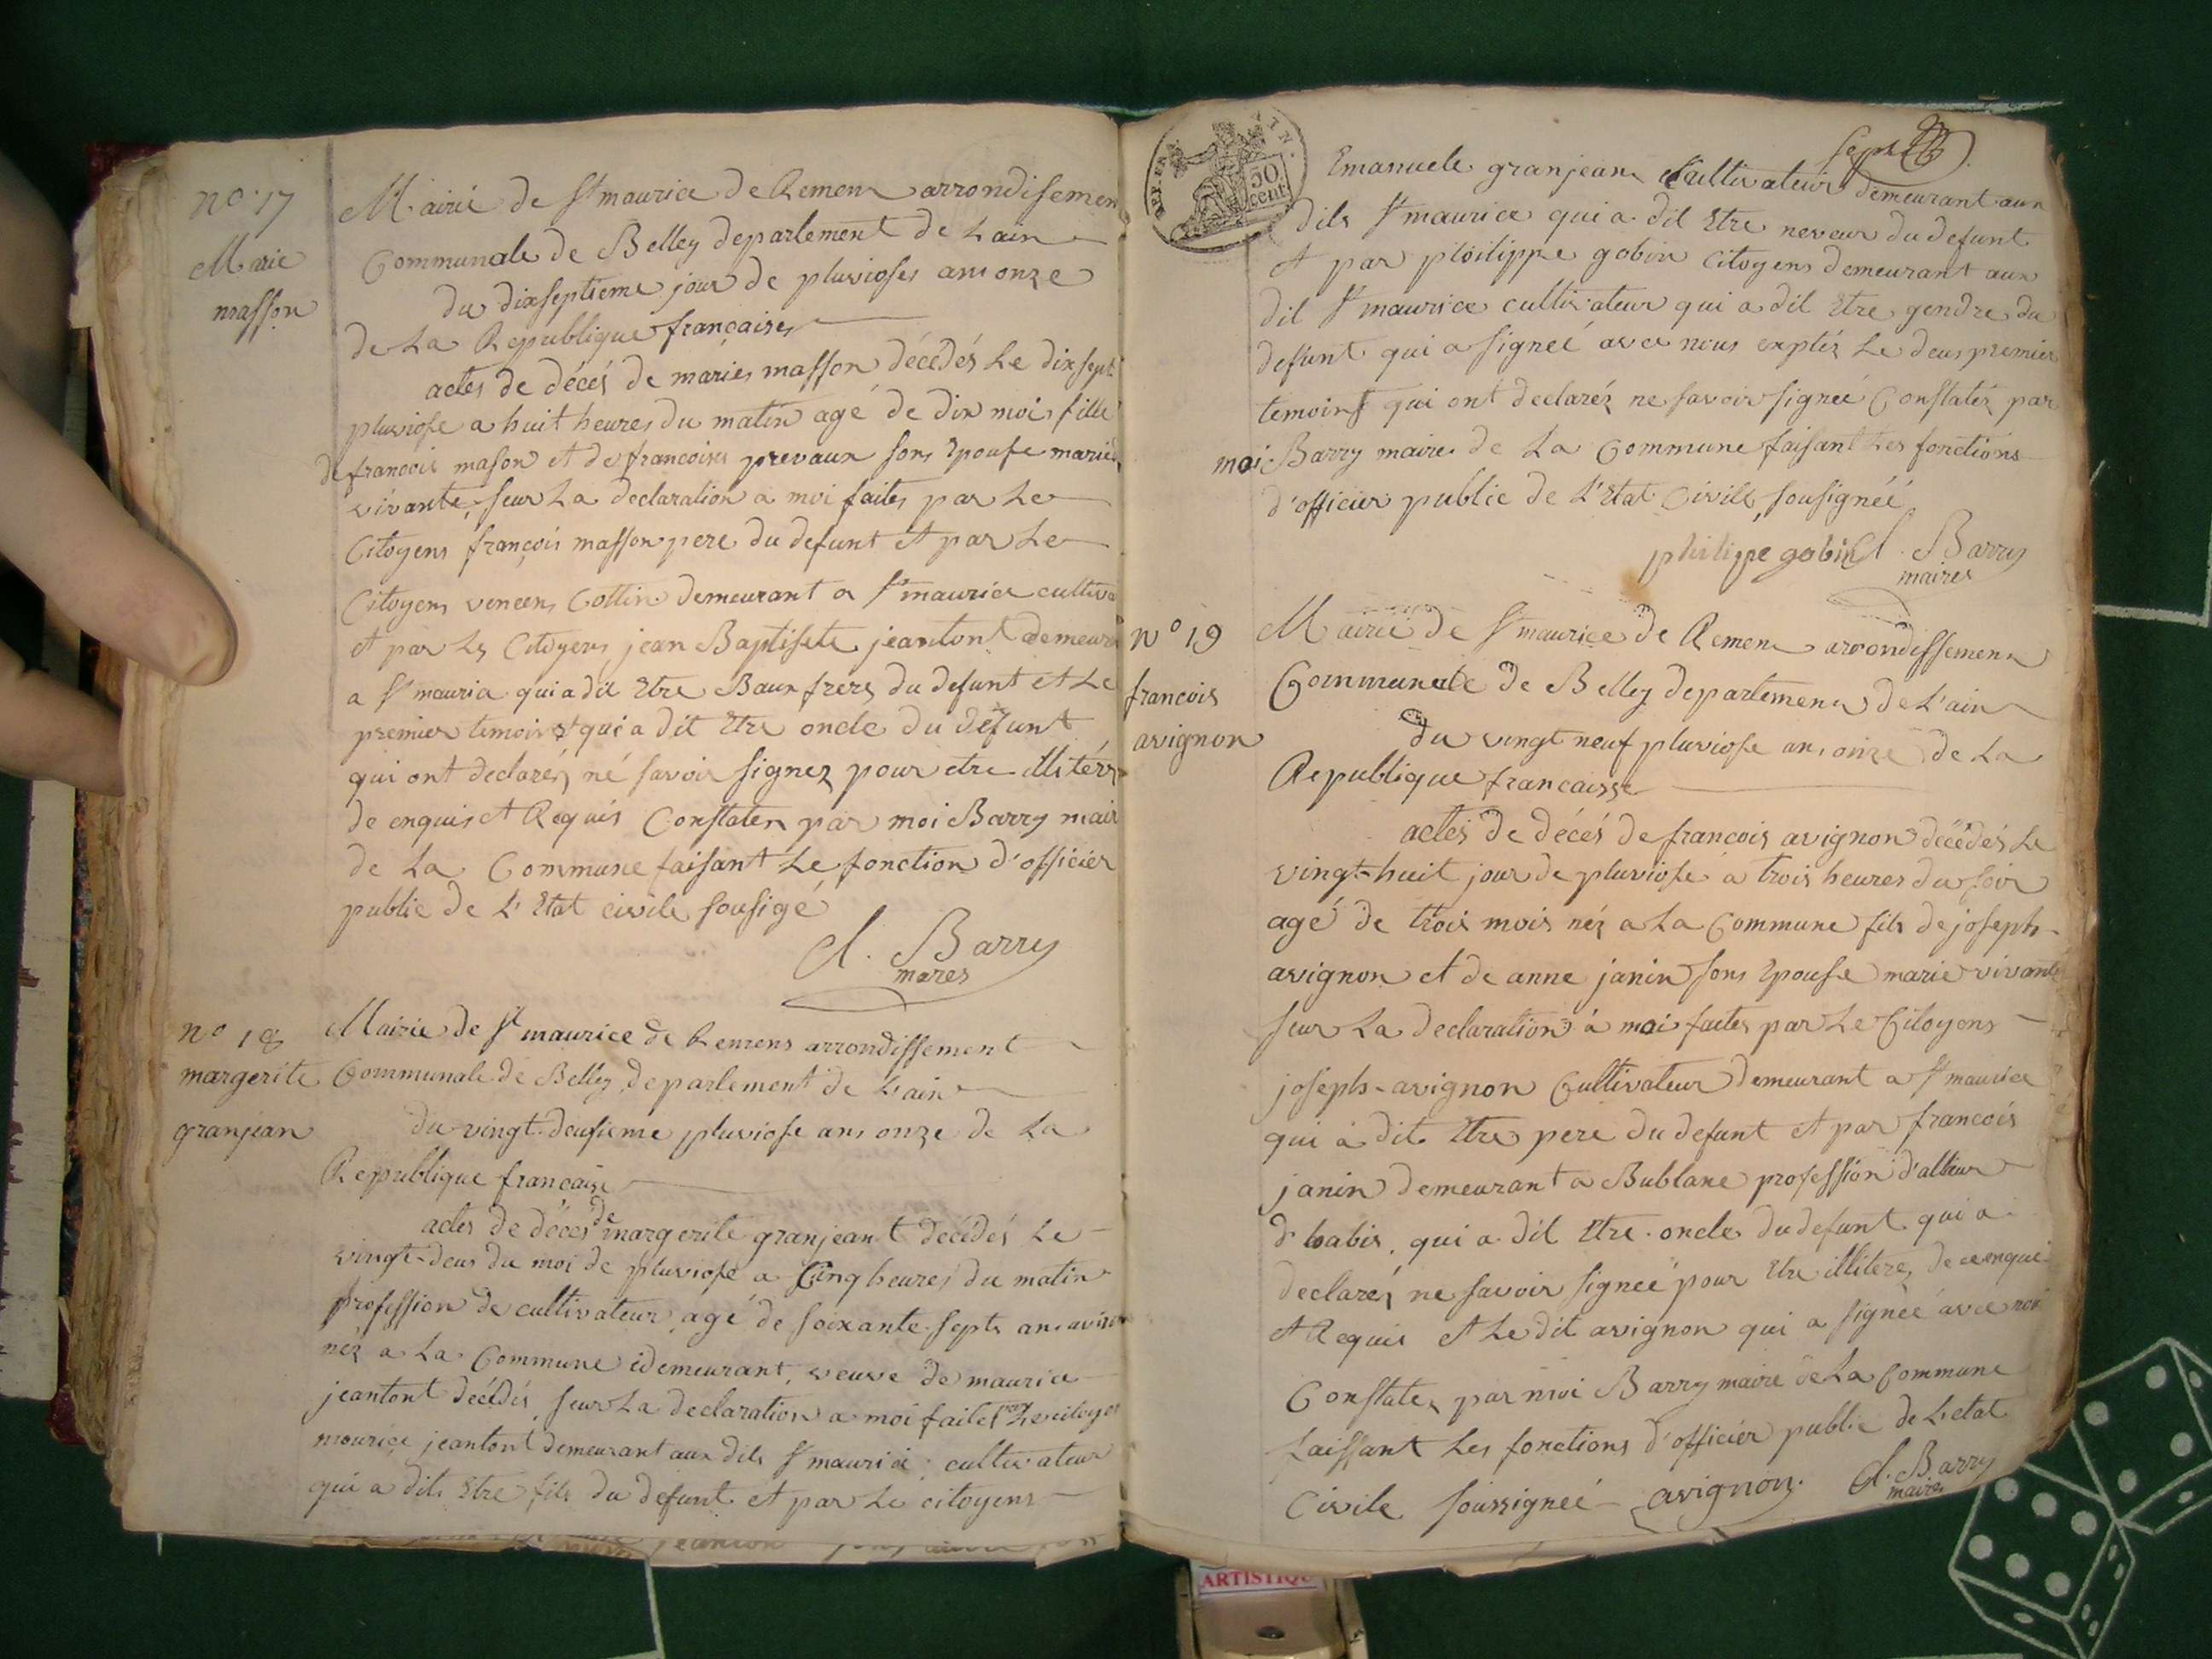 no. 17
Marie
masson
Mairie de St maurice de Remens arrondisemen
Communale de Belley departement de Lain
du dixseptieme jour de pluvioses ans onze
de La Republique françaises
actes de décés de maries masson décédés Le dixsept
pluviose a huit heures du matin agé de dix mois fille
de francois mason et de francoises prevaux sons Epouse maries
vivante, seur La declaration a moi faites par Le
Citoyens françois masson pere du defunt et par Le
Citoyens vencens Collin demeurant a St maurice cultiva
et par Le Citoyens jean Baptisete jeantont demeura
a St maurice qui a dit Etre Baux freres du defunt et Le
premier temoins qui a dit Etre oncle du défunt
qui ont declarés né savoir signez pour etre illitérs
de enquis et Requis Constaten par moi Barry mair
de La Commune faisant Le fonction d'officier
public de L'Etat civile sousigé
Cl. Barry
mares
no 18
margerite
granjean
Mairie de St maurice de Remens arrondissement
Communale de Belley departement de Lain
du vingt-deusieme pluviose ans onze de La
Republique francaise
actes de déces de margerite granjeant décédés Le
vingt-deus du moi de pluviose a Cinq heures du matin
profession de cultivateur agé de soixante septs ans aviron
néz a La Commune idemeurant, veuve de maurice
jeantont décédés, seur La declaration a moi faites par Le citoyen
mourice jeantont demeurant aux dits St maurice cultivateur
qui a dits Etre fils du defunt et par Le citoyens
sept
50
cent
Emanuele granjean Cultivateur demeurant aux
dils St maurice qui a dil Etre neveux du defunt
et par ploilippe gobin Citoyens demeurant aux
dil St maurice cultivateur qui a dil Etre gendre du
defunt qui a signeé avec nous exptéz Le deus premier
temoins qui ont declaréz ne savoir signeé Constatéz par
moi Barry maire de La Commune faisant Les fonctions
d'officier public de L'Etat Civile sousignéé
philippe gobin Cl. Barry
maires
no 19
francois
avignon
Mairie de St maurice de Remens arrondissemens
Communale de Belley departemens de L'ain
du vingt neuf pluviose ans onze de La
Republique francaisse
actes de décés de francois avignon décédés Le
vingt-huit jour de pluviose a trois heures du soir
agé de trois mois néz a La Commune fils de joseph
avignon et de anne janin sons Epouse marie vivante
seur La declaration à moi faites par Le Citoyens
joseph-avignon Cultivateur demeurant a St maurice
qui a dit Etre pere du defant et par francois
janin demeurant a Bublane profession d'allieur
d'habis, qui a dil Etre oncle du defunt qui a
declarés ne savoir signeé pour Etre illitere, de ce enquis
et Requis et Le dit avignon qui a signéé avec moi
Constatés par moi Barry maire de La Commune
faissant Les fonctions d'officier public de L'etat
Civile soussigneé avignon. Cl. Barry
maires
ARTISTIQU